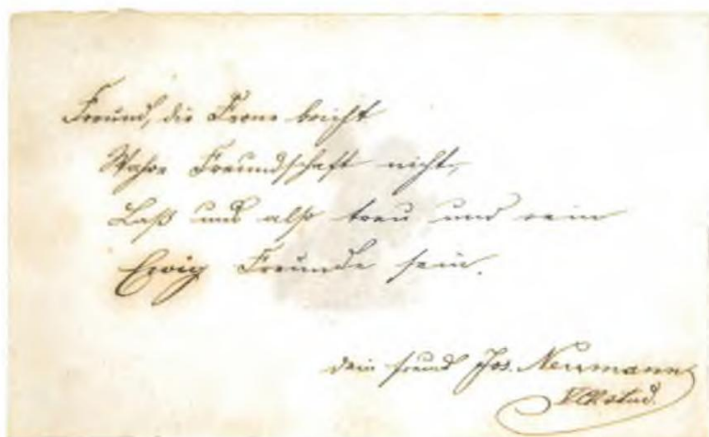 Freund, die Ferne bricht
Wahre Freundschaft nicht,
Laß uns also treu und rein
Ewig Freunde sein.
dein Freund Jos. Neumann
stud.